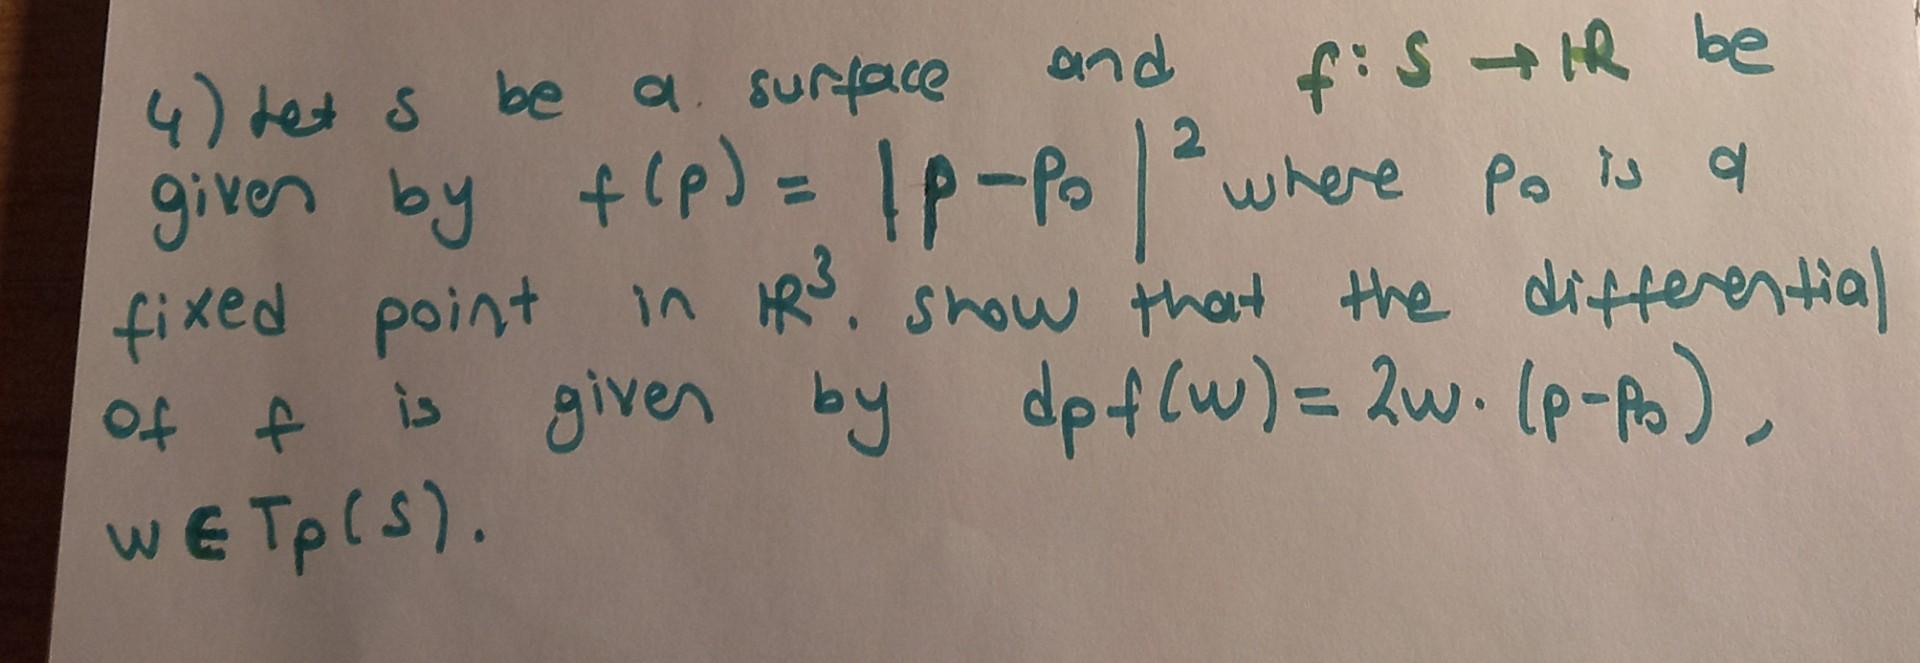 4) Let S be a surface and f: S → IR be
given by f(p) = |p-p₀|² where p₀ is a
fixed point in IR³. Show that the differential
of f is given by dpf(w) = 2w·(p-p₀),
w ∈ Tp(S).